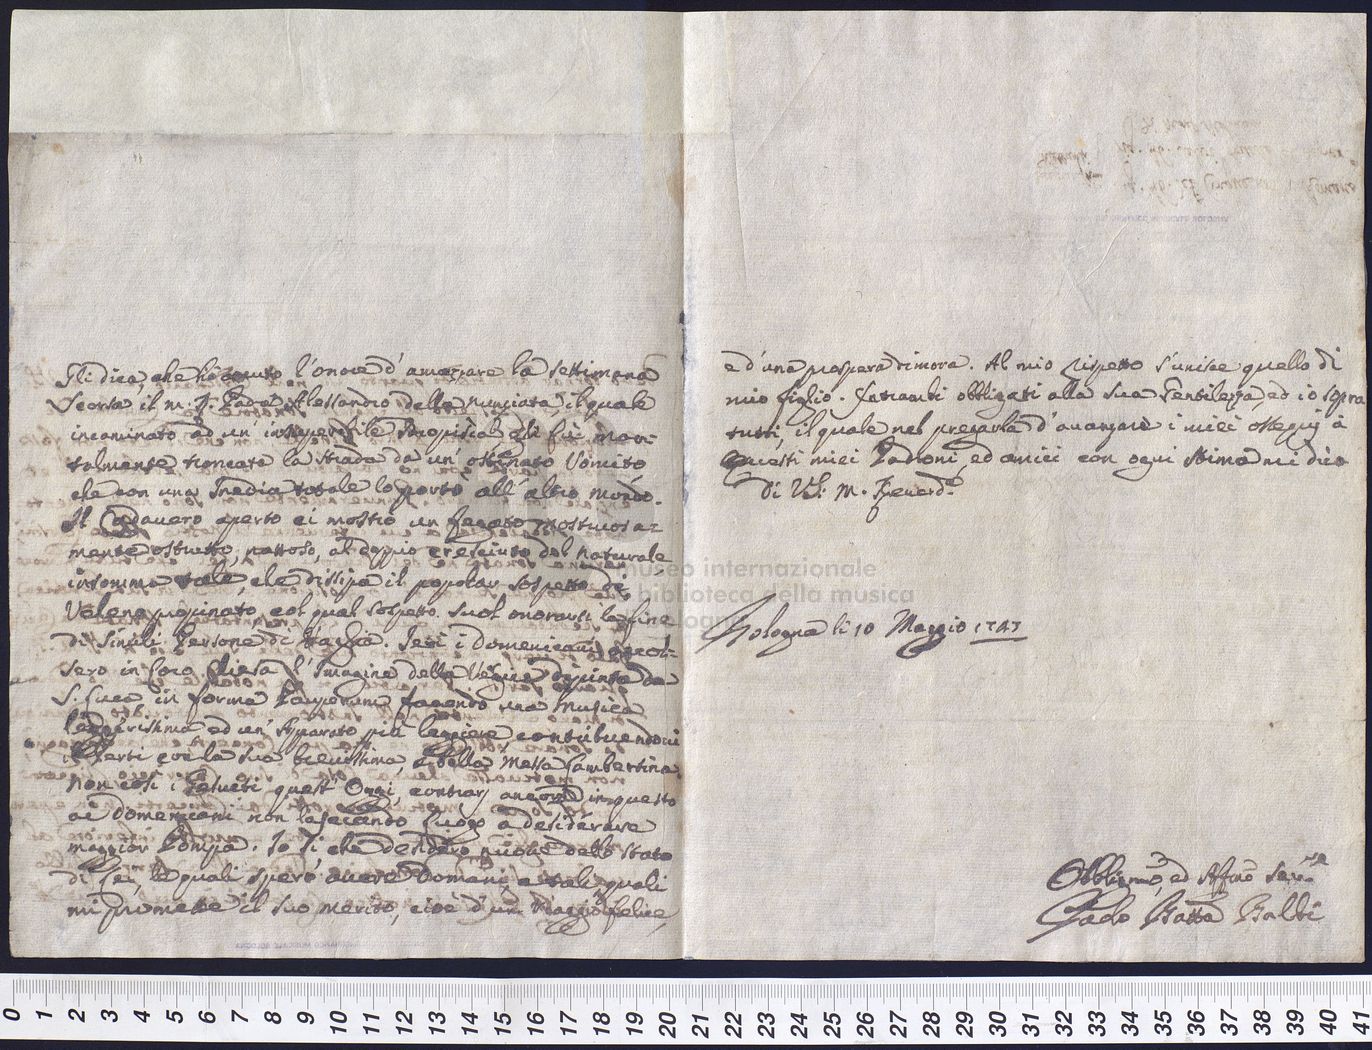 Gli dica, che hò avuto l'onore d'amazzare la settimana
scorsa il m. R. Padre Alessandro della Nunziata, il quale
incaminato ad un' insuperabile Idropisia gli fù mor-
talmente troncata la strada da un' ostinato Vomito
che con una Inedia totale lo portò all' altro mondo.
Il Cadavero aperto ci mostrò un fegato mostruosa-
mente ostrutto, al doppio cresciuto del naturale
insomma tale, che dissipa il popolar sospetto di
Veleno propinato, col qual sospetto suol onorarsi la fine
di simili Persone di . Jeri i domenicani
sero in loro Chiesa l'Imagine della Vergine dipinta da
S. Luca in forma Pauperum facendo una Musica
ed un' Apparato più leggiero contribuendovi
il Perti con la sua brevissima, e bella Messa Lambertina
non così i quest' Oggi, contrarj ancora in questo
ai domenicani non lasciando luogo a desiderare
maggior Pompa. Io sì che desidero nuove dello stato
di Lei, le quali spero avere Domani, e tali quali
mi promette il suo merito, cioè d'un Viaggio felice,
e d'una prospera dimora. Al mio rispetto s'unisce quello di
mio figlio. Intrambi obbligati alla sua Gentilezza, ed io sopra
tutti, il quale nel pregarla d'avanzare i miei ossequj à
questi miei Padroni, ed amici con ogni stima mi dico
Di V.S. M. Reverda
Bologna li 10 Maggio 1747
Obbligmo, ed Affmo Servre
Paolo Batta Balbi
museo internazionale
biblioteca della musica
bologna